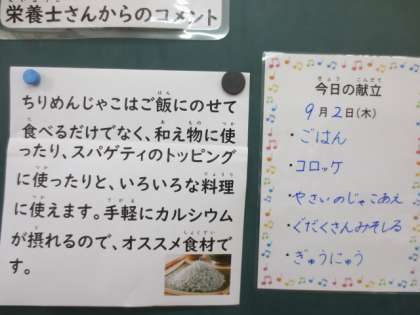 栄養士さんからのコメント
ちりめんじゃこはご飯にのせて
食べるだけでなく、和え物に使
ったり、スパゲティのトッピング
に使ったりと、いろいろな料理
に使えます。手軽にカルシウム
が摂れるので、オススメ食材で
す。
今日の献立
9月2日(木)
・ごはん
・コロッケ
・やさいのじゃこあえ
・ぐだくさんみそしる
・ぎゅうにゅう